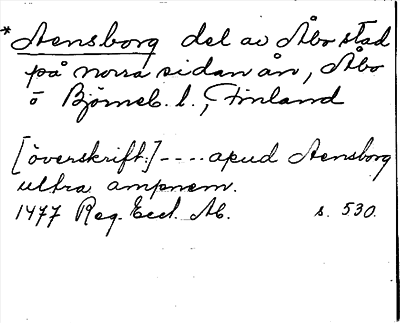 * Aensborg del av Åbo stad
på norra sidan ån, Åbo
o Björneb. l., Finland
[överskrift:] ---- apud Aensborg
ultra ampnem.
1477 Reg. Eccl. Ab. s. 530.